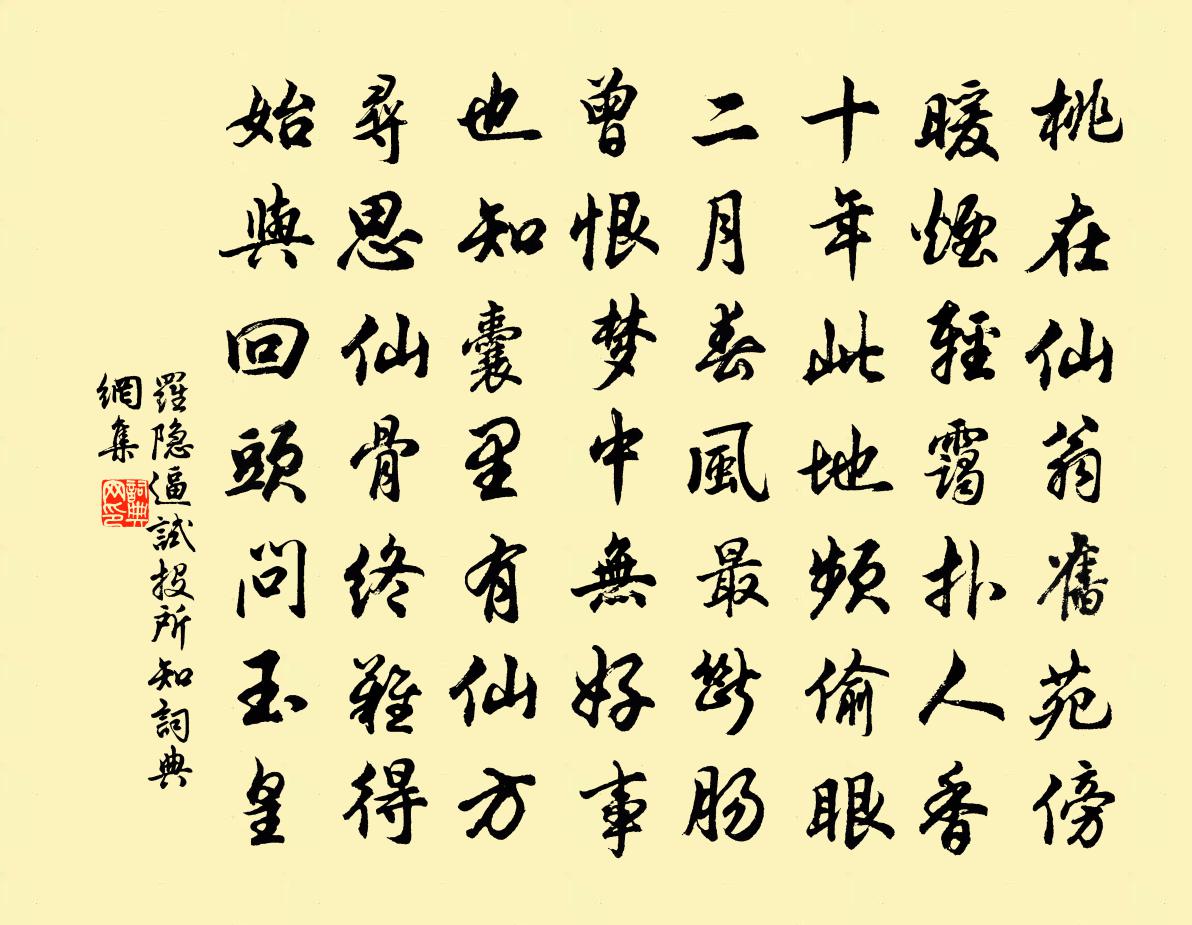 桃在仙翁舊苑傍
暖煙輕靄扑人香
十年此地頻偷眼
二月春風最斷腸
曾恨梦中無好事
也知囊里有仙方
尋思仙骨终難得
始與回頭問玉皇
羅隐逼試投所知詞典
網集
詞典網印